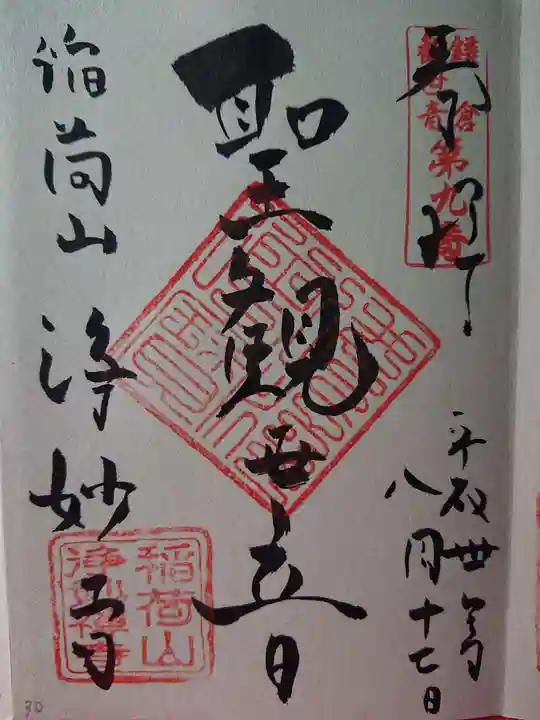 奉拝
鎌倉
観音
第九番
平成卅年
八月十七日
聖観世音
稲荷山 浄妙寺
稲荷山
30